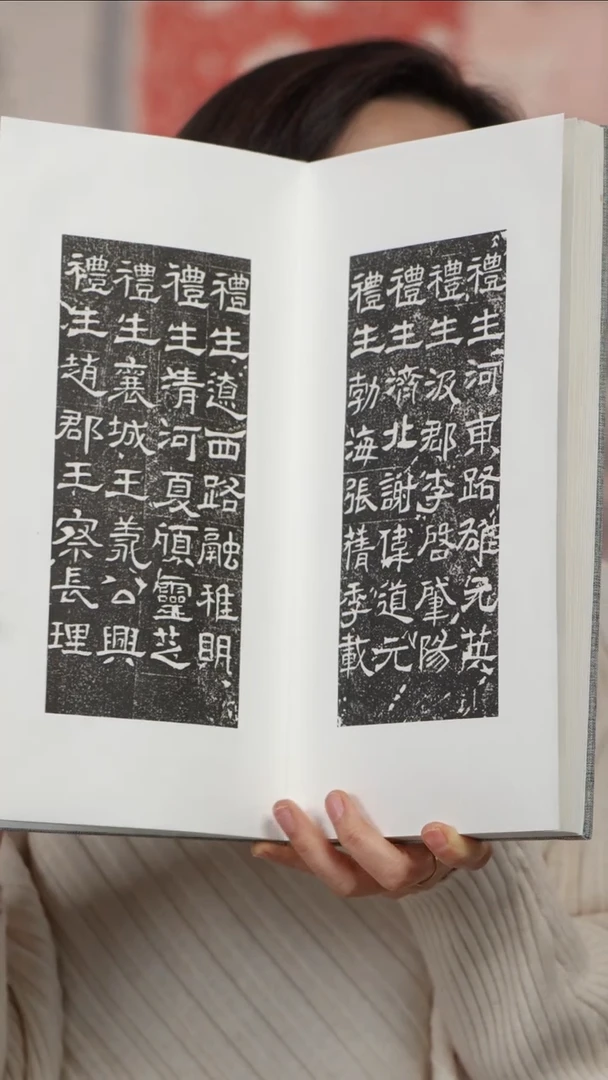 禮生河東路雄元英
禮生汲郡李啓肇陽
禮生濟北謝偉道元
禮生勃海張蒨季載
禮生遼西路融稚明
禮生清河夏靈芝
禮生襄城王公興
禮生趙郡王察長理